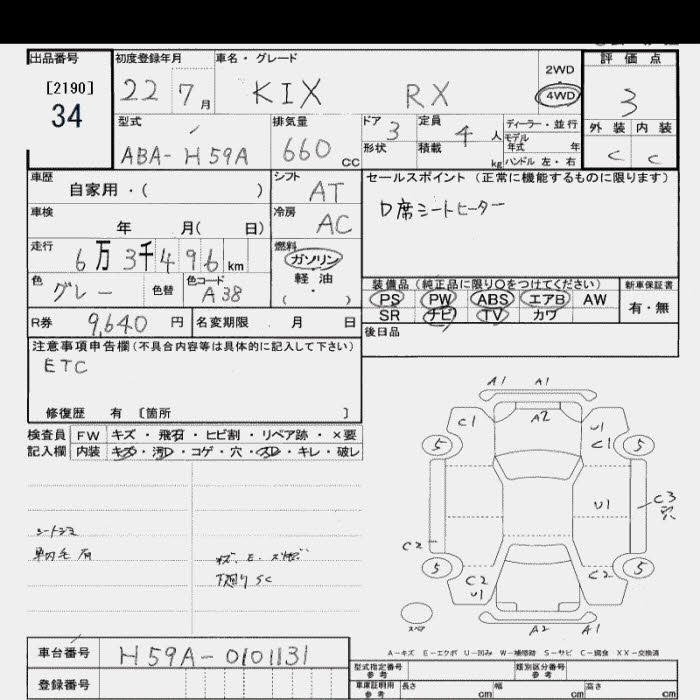 出品番号 初度登録年月 車名・グレード 評価点
[2190] 22 7月 KIX RX 2WD 4WD 3
34
型式 排気量 ドア 3 定員 4人 ディーラー・並行 外装 内装
ABA-H59A 660cc 形状 積載 kg モデル年式 年 ハンドル 左・右 C C
車歴 シフト セールスポイント (正常に機能するものに限ります)
自家用・( ) AT
D席シートヒーター
車検 冷房
年 月( 日) AC
走行 燃料
6万3千496km ガソリン
軽油
( ・ )
色 グレー 色替 色コード A38
装備品 (純正品に限り○をつけてください) 新車保証書
PS PW ABS エアB AW 有・無
SR ナビ TV カワ
R券 9,640円 名変期限 月 日
後日品
注意事項申告欄 (不具合内容等は具体的に記入して下さい)
ETC
修復歴 有 [箇所 ]
検査員 FW キズ・飛石・ヒビ割・リペア跡・×要
記入欄 内装 キズ・汚レ・コゲ・穴・スレ・キレ・破レ
A1 A1
C1 A2 U1
5 C1 5
U1 C3
穴
C2
5 C2 C2 5
U1
下廻りSC
スペア A2 A1
A-キズ E-エクボ U-凹み W-補修跡 S-サビ C-腐食 XX-交換済
車台番号 H59A-0101131
型式指定番号 参考 類別区分番号 参考
登録番号 車庫証明用 参考 長さ cm 幅 cm 高さ cm